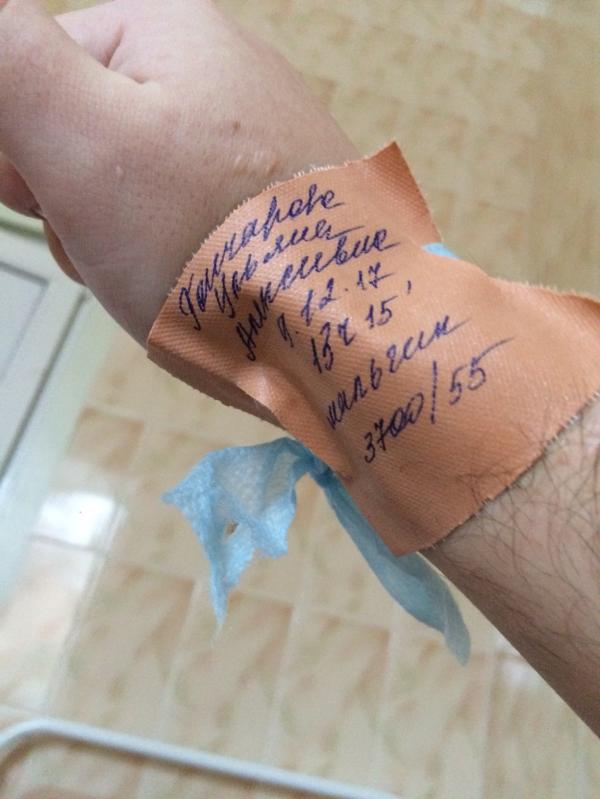 Гончарова
Ульяна
Алексеевна
9.12.17
13ч 15'
мальчик
3700/55